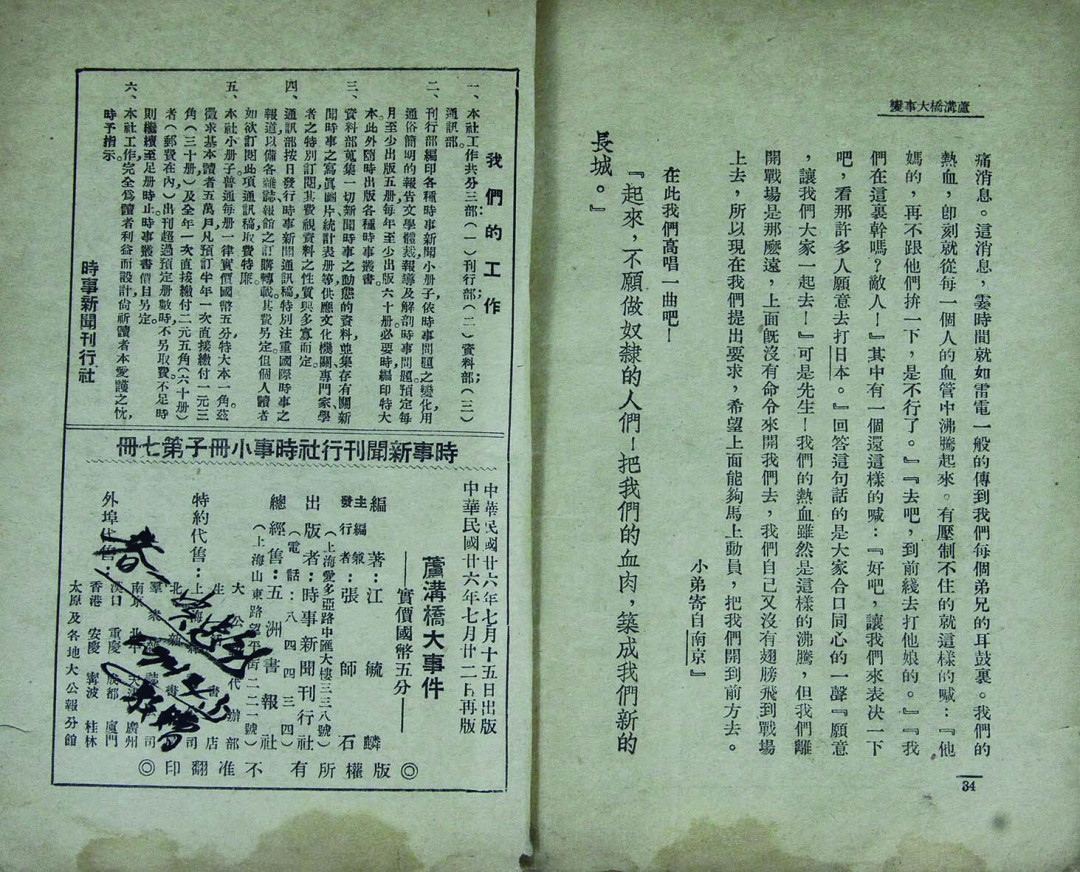 蘆溝橋大事變
痛消息。這消息，霎時間就如雷電一般的傳到我們每個弟兄的耳鼓裏。我們的
熱血，卽刻就從每一個人的血管中沸騰起來。有壓制不住的就這樣的喊：『他
媽的，再不跟他們拚一下，是不行了。』『去吧，到前綫去打他娘的。』『我
們在這裏幹嗎？敵人！』其中有一個還這樣的喊：『好吧，讓我們來表决一下
吧，看那許多人願意去打日本。』回答這句話的是大家合口同心的一聲『願意
，讓我們大家一起去！』可是先生！我們的熱血雖然是這樣的沸騰，但我們離
開戰場是那麽遠，上面旣沒有命令來開我們去，我們自己又沒有翅膀飛到戰場
上去，所以現在我們提出要求，希望上面能夠馬上動員，把我們開到前方去。
小弟寄自南京』
在此我們高唱一曲吧！
『起來，不願做奴隸的人們！把我們的血肉，築成我們新的
長城。』
34
我們的工作
一、本社工作共分三部：（一）刊行部；（二）資料部；（三）
通訊部。
二、刊行部編印各種時事新聞小册子，依時事問題之變化，用
通俗簡明的報吿文學體裁，報導及解剖時事問題，預定每
月至少出版五册，每年至少出版六十册，必要時編印特大
本，此外隨時出版各種時事叢書。
三、資料部蒐集一切新聞時事之動態的資料，並集存有關新
聞時事之寫眞圖片統計表册等，供應文化機關專門家學
者之特別訂閱，其費視資料之性質與多寡而定。
四、通訊部按日發行時事新聞通訊稿，特別注重國際時事之
報道，以備各雜誌報館之訂購轉載，其費另定，但個人讀者
如欲訂閱此項通訊稿，取費特廉。
五、本社小册子普通每册一律實價國幣五分，特大本一角，茲
徵求基本讀者五萬戶，凡預訂半年一次直接繳付一元三
角（三十册）及全年一次直接繳付二元五角（六十册）
者（郵費在內）出刊超過預定册數時，不另取費，不足時
則繼續至足册時止，時事叢書價目另定。
六、本社工作完全爲讀者利益而設計，尙祈讀者本愛護之忱，
時予指示。
時事新聞刊行社
時事新聞刊行社時事小冊子第七冊
中華民國廿六年七月十五日出版
中華民國廿六年七月廿二日再版
蘆溝橋大事件
——實價國幣五分——
編著：江毓麟
主編兼發行者：張師石
（上海愛多亞路中匯大樓三三八號）
出版者：時事新聞刊行社
（電話：八四四三四）
總經售：五洲書報社
（上海山東路望平街二二一號）
特約代售：
大公報代辦部
生活書店
上海雜誌公司
北新書局
羣衆雜誌公司
外埠代售：
南京 北平 天津 廣州
漢口 重慶 成都 廈門
香港 安慶 寧波 桂林
太原及各地大公報分館
◎版權所有 不准翻印◎